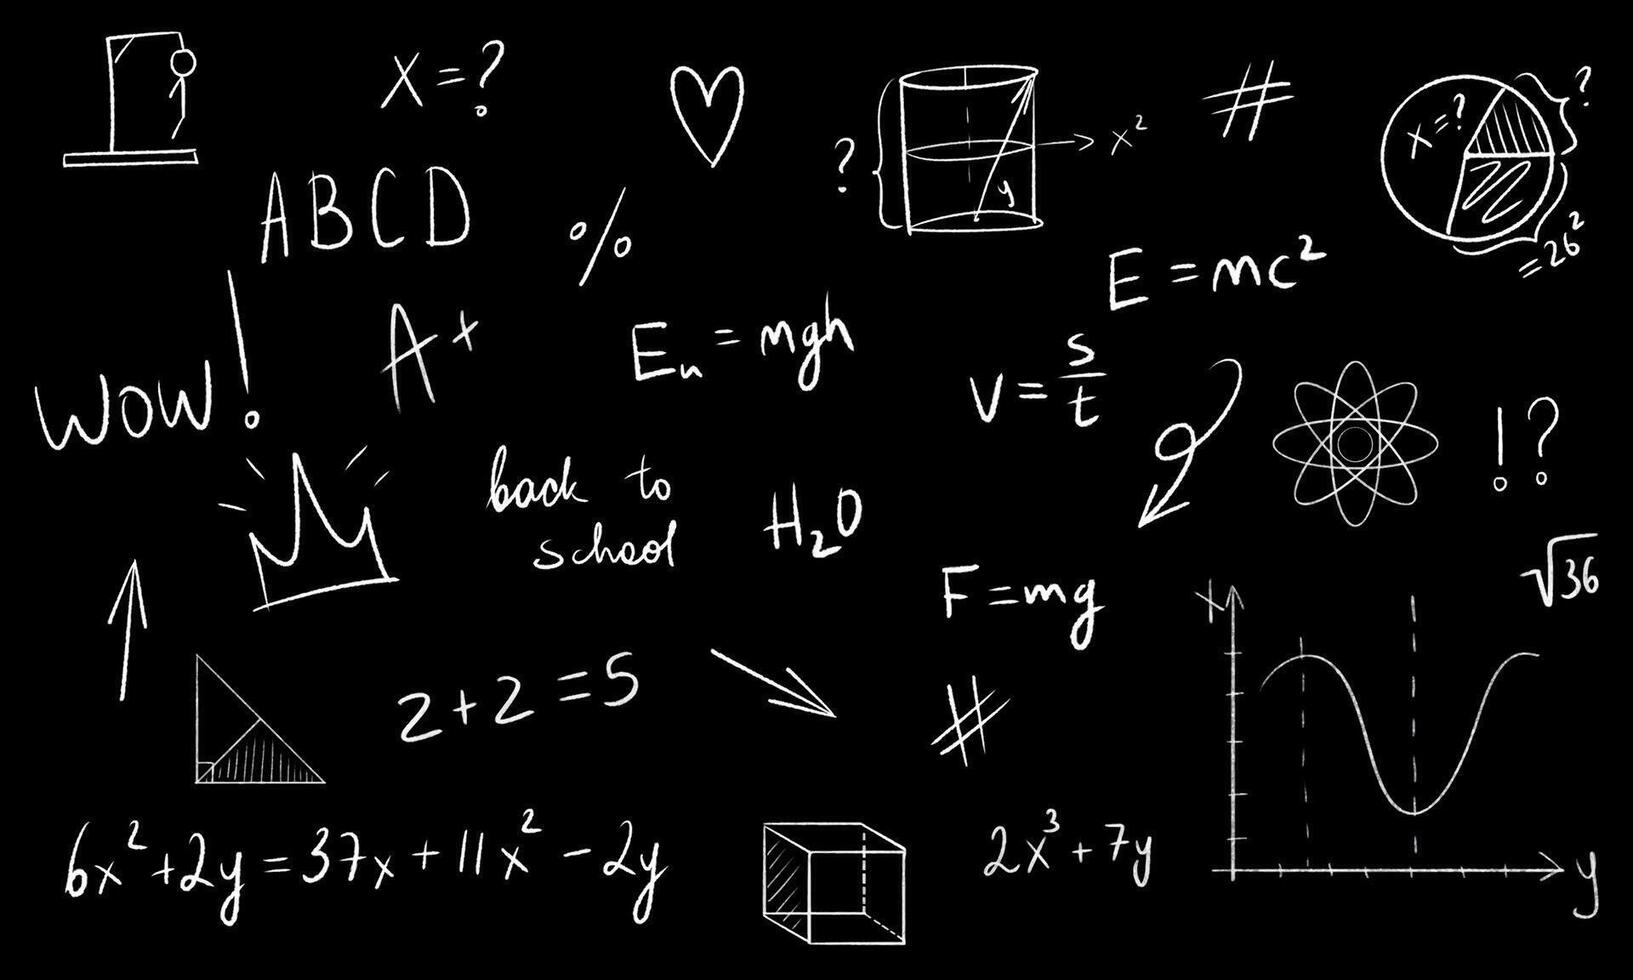 X=?
?
x²
y
#
x=?
?
=26²
ABCD
%
E=mc²
WOW!
A+
Eₙ=mgh
V=s/t
!?
back to
school
H₂O
√36
F=mg
x
2+2=5
#
6x²+2y=37x+11x²-2y
2x³+7y
y